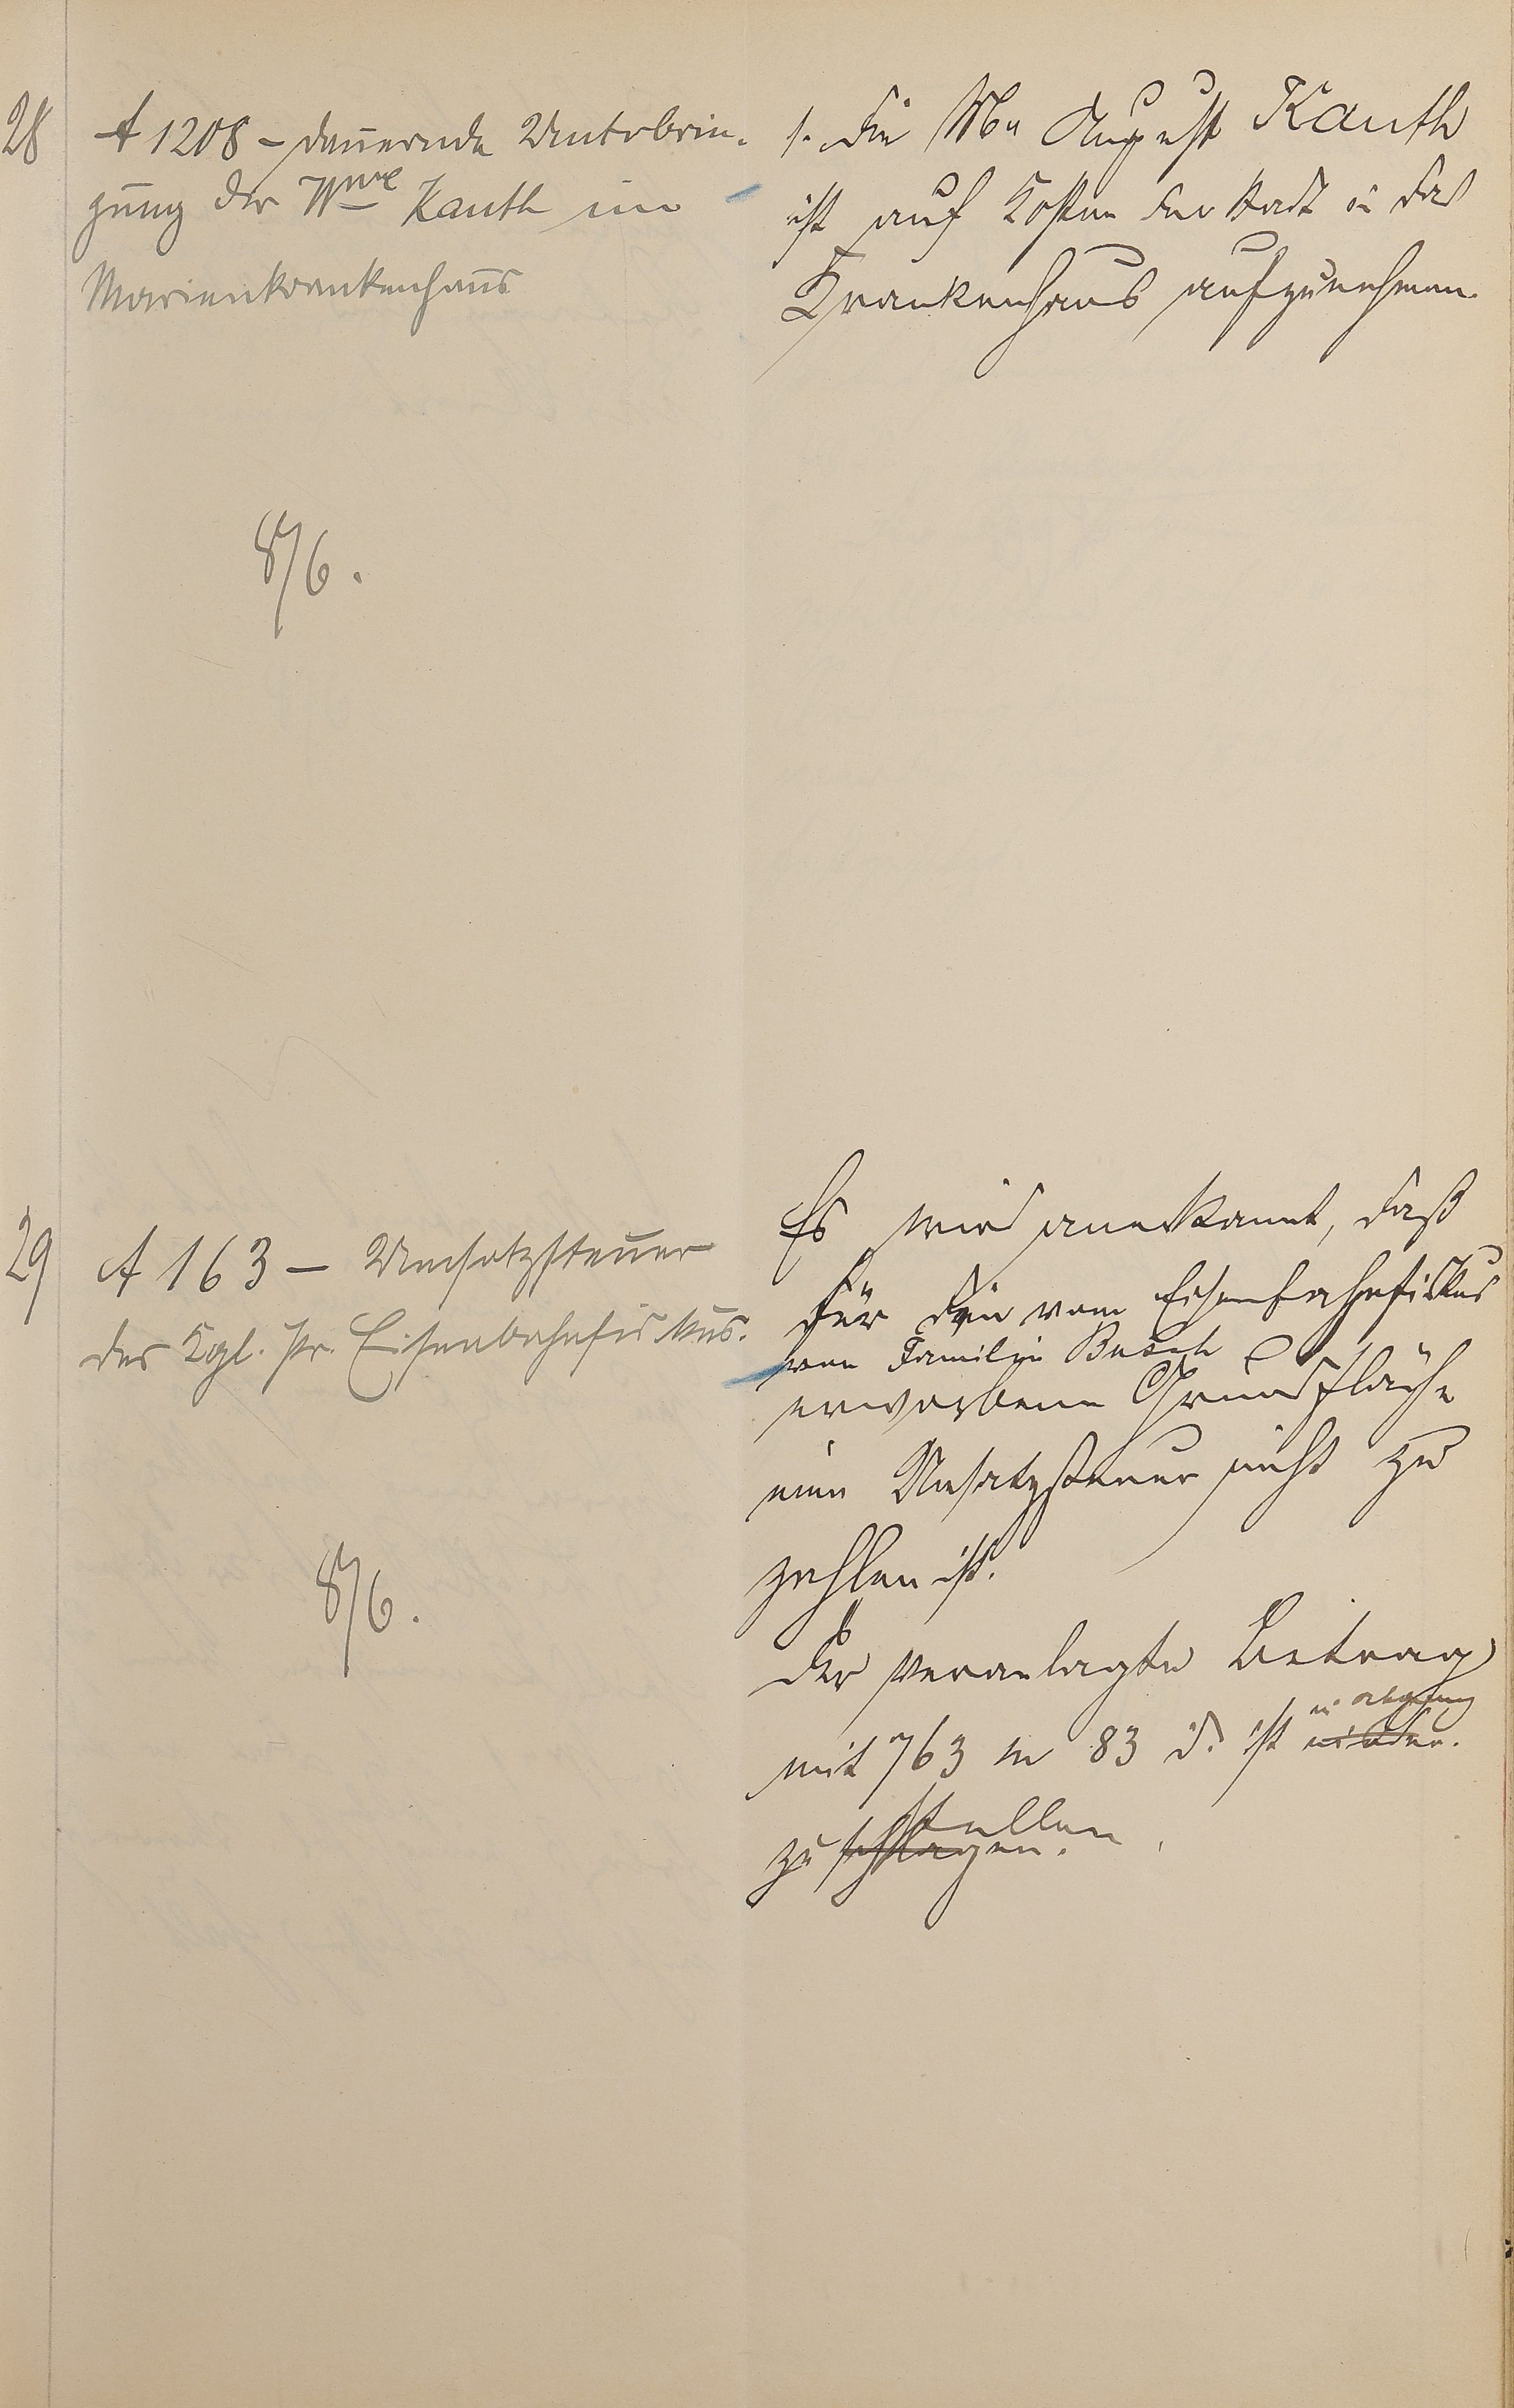 28
A 1208 – dauernde Unterbrin-
gung der Wwe Kauth im
Marienkrankenhaus
8/6.
1. Die Ww August Kauth
ist auf Kosten der Stadt in das
Krankenhaus aufzunehmen.
29
A 163 – Umsatzsteuer
des Kgl. Pr. Eisenbahnfiskus.
8/6.
Es wird anerkannt, daß
für die vom Eisenbahnfiskus
von Familie Busch
erworbene Grundfläche
eine Umsatzsteuer nicht zu
zahlen ist.
Der veranlagte Betrag
in Abgang
mit 763 M 83 d. ist nieder-
stellen.
zu schlagen.